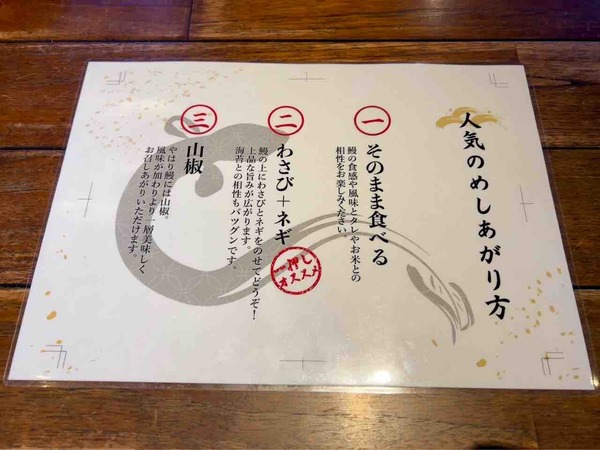 人気のめしあがり方
一
そのまま食べる
鰻の食感や風味とタレやお米との
相性をお楽しみください。
二
わさび＋ネギ
一押し
オススメ
鰻の上にわさびとネギをのせてどうぞ！
上品な旨みが広がります。
海苔との相性もバツグンです。
三
山椒
やはり鰻には山椒。
風味が加わりより一層美味しく
お召しあがりいただけます。